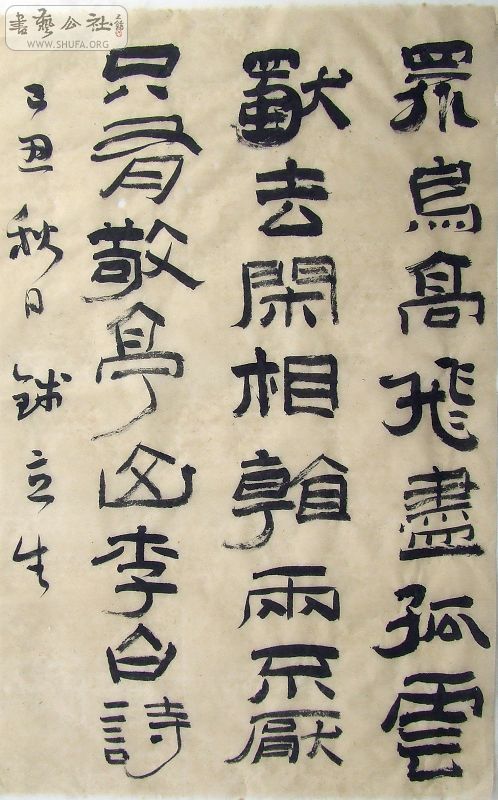 書藝公社
WWW.SHUFA.ORG
眾鳥高飛盡孤雲
獨去閑相看兩不厭
只有敬亭山李白詩
己丑秋日 錢立生